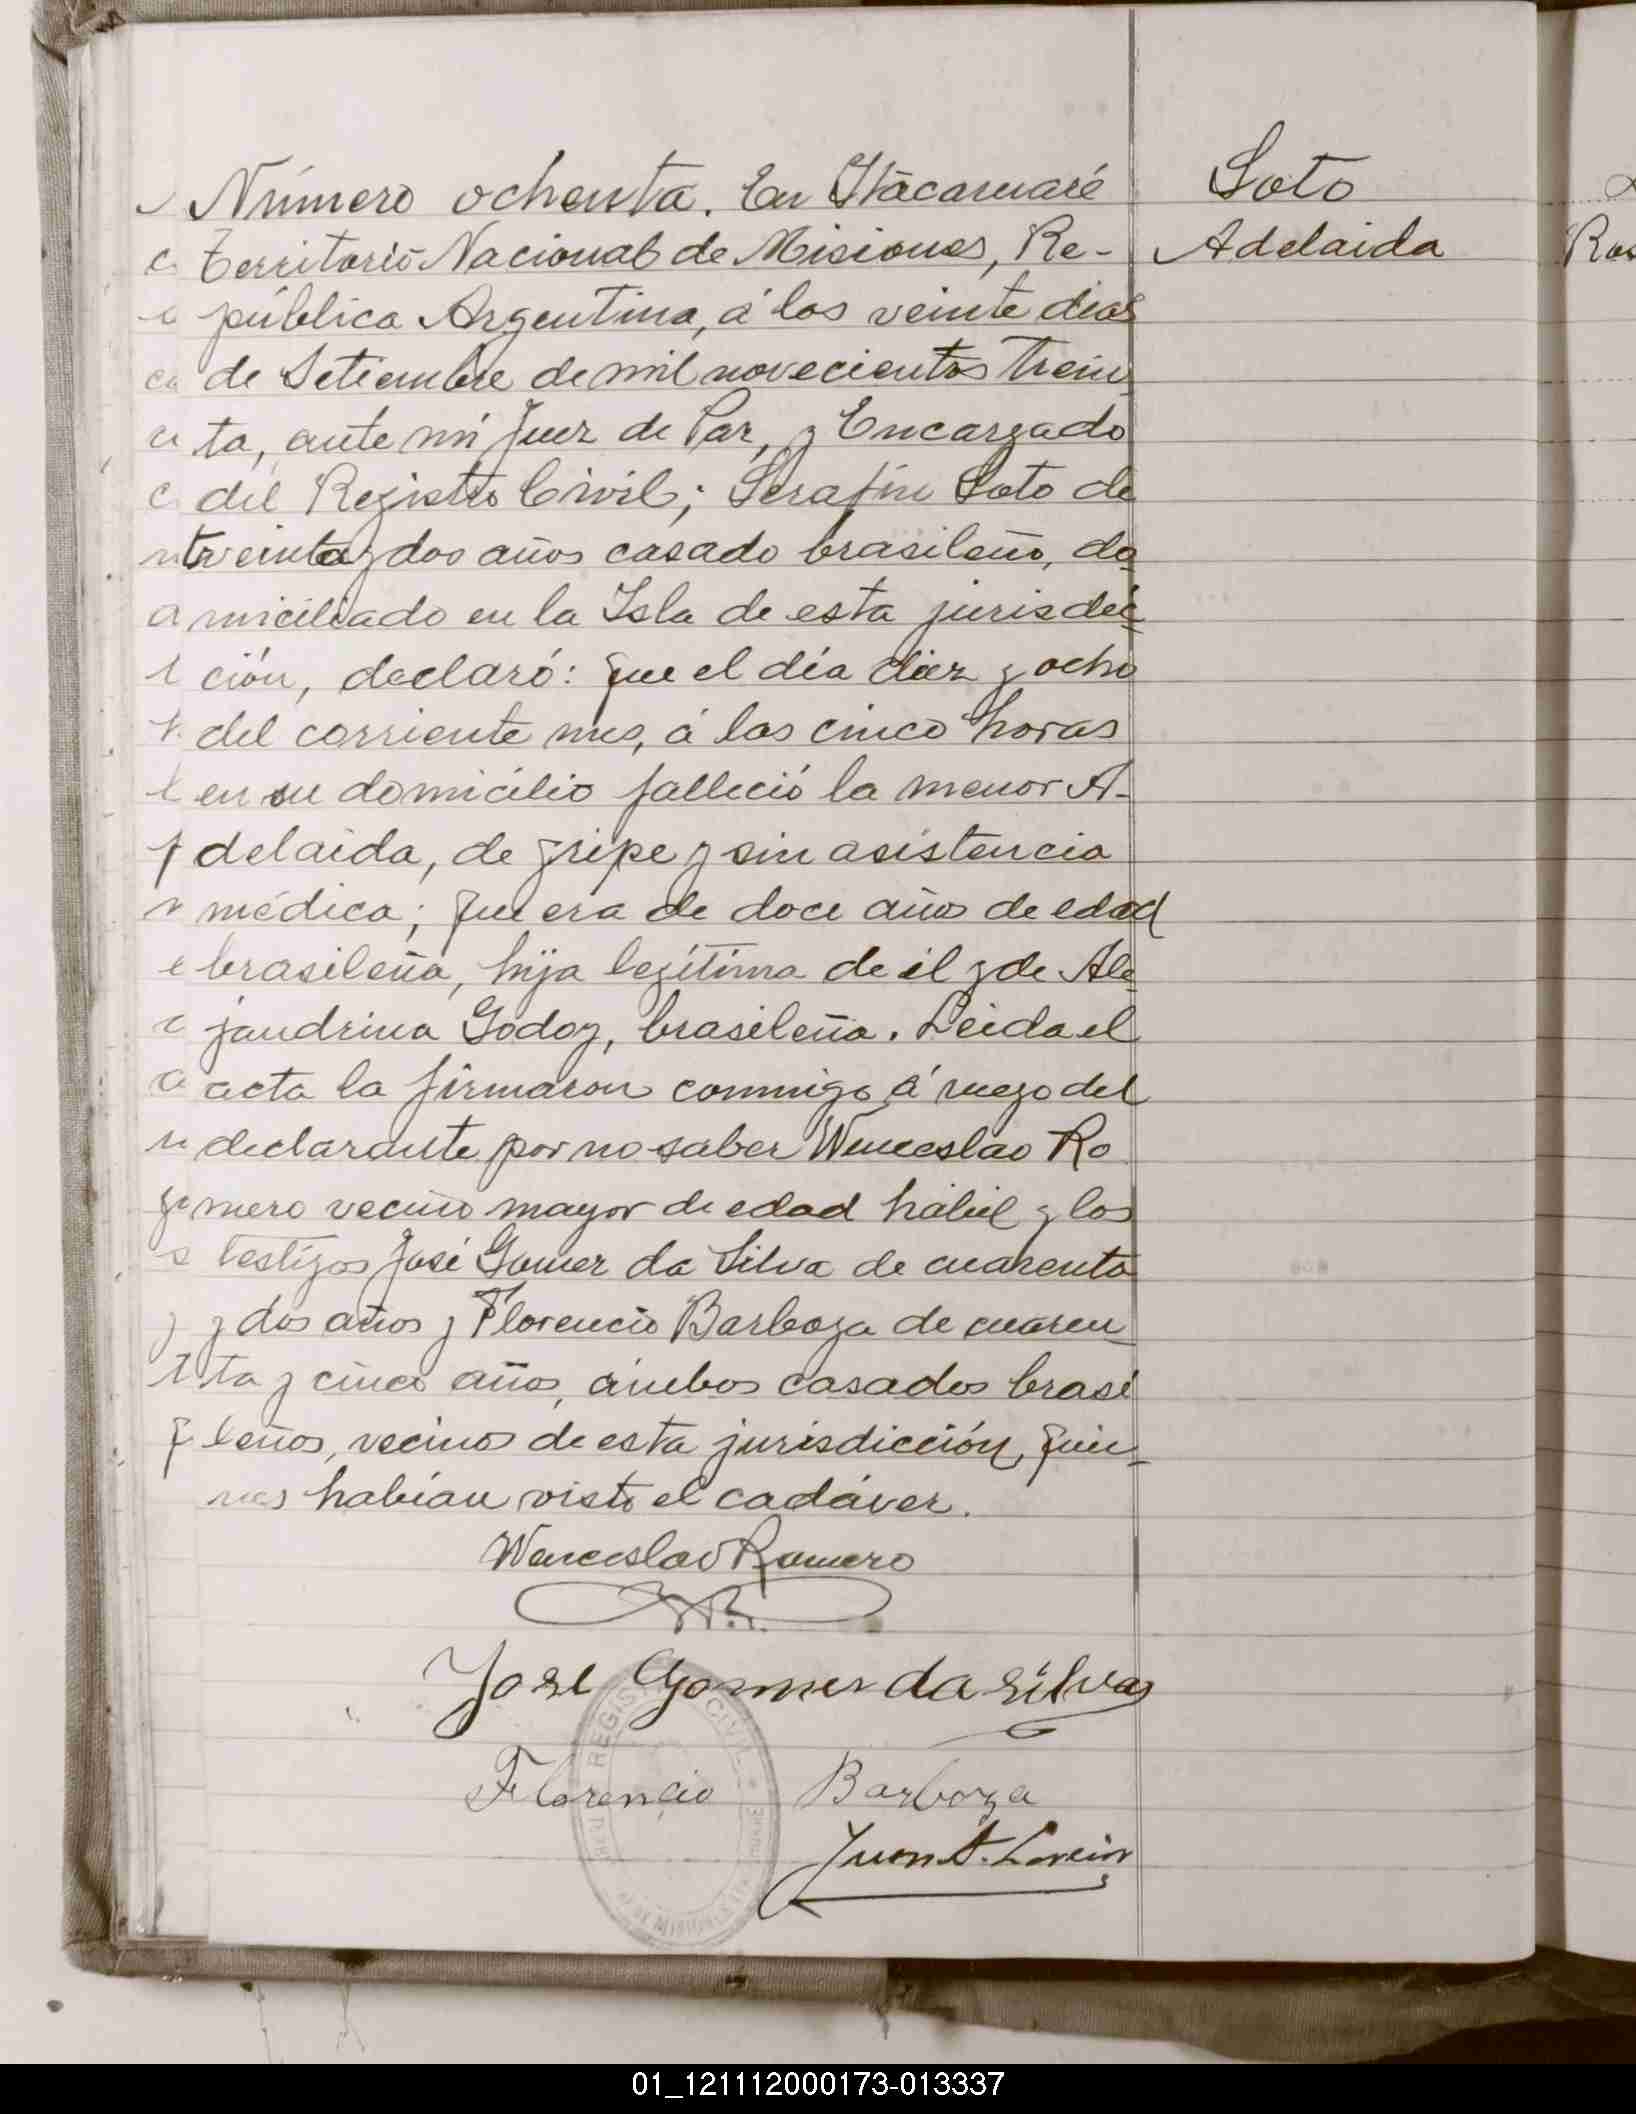 Número ochenta. En Itácaruaré
Soto
Territorio Nacional de Misiones, Re-
Adelaida
pública Argentina, á los veinte dias
de Setiembre de mil novecientos trein
ta, ante mí Juez de Paz, y Encargado
del Registro Civil; Serafin Soto de
treinta y dos años casado brasileño, do-
miciliado en la Isla de esta jurisdic-
ción, declaró: Que el día diez y ocho
del corriente mes, á las cinco horas
en su domicilio falleció la menor A-
delaida, de gripe y sin asistencia
médica; Que era de doce años de edad
brasileña, hija legítima de él y de Ale-
jandrina Godoy, brasileña. Leida el
acta la firmaron conmigo á ruego del
declarante por no saber Wenceslao Ro
mero vecino mayor de edad hábil y los
testigos José Gomez da Silva de cuarenta
y dos años y Florencio Barboza de cuaren
ta y cinco años, ámbos casados brasi
leños, vecinos de esta jurisdicción, quie-
nes habían visto el cadáver.
Wenceslao Romero
José Gomes da Silva
REGISTRO CIVIL
Florencio Barboza
Juan A.
01_121112000173-013337